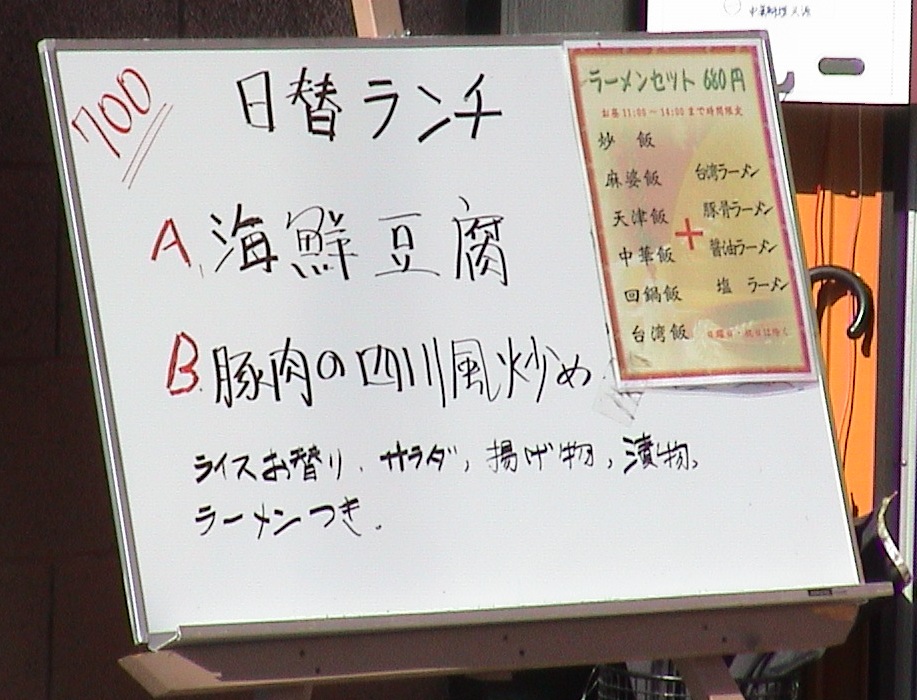 700
日替ランチ
A 海鮮豆腐
B. 豚肉の四川風炒め
ライスお替り、サラダ、揚げ物、漬物、
ラーメンつき.
ラーメンセット 680円
お昼11:00～14:00まで時間限定
炒飯
麻婆飯 台湾ラーメン
天津飯 豚骨ラーメン
+
中華飯 醤油ラーメン
回鍋飯 塩 ラーメン
台湾飯 日曜日・祝日は除く